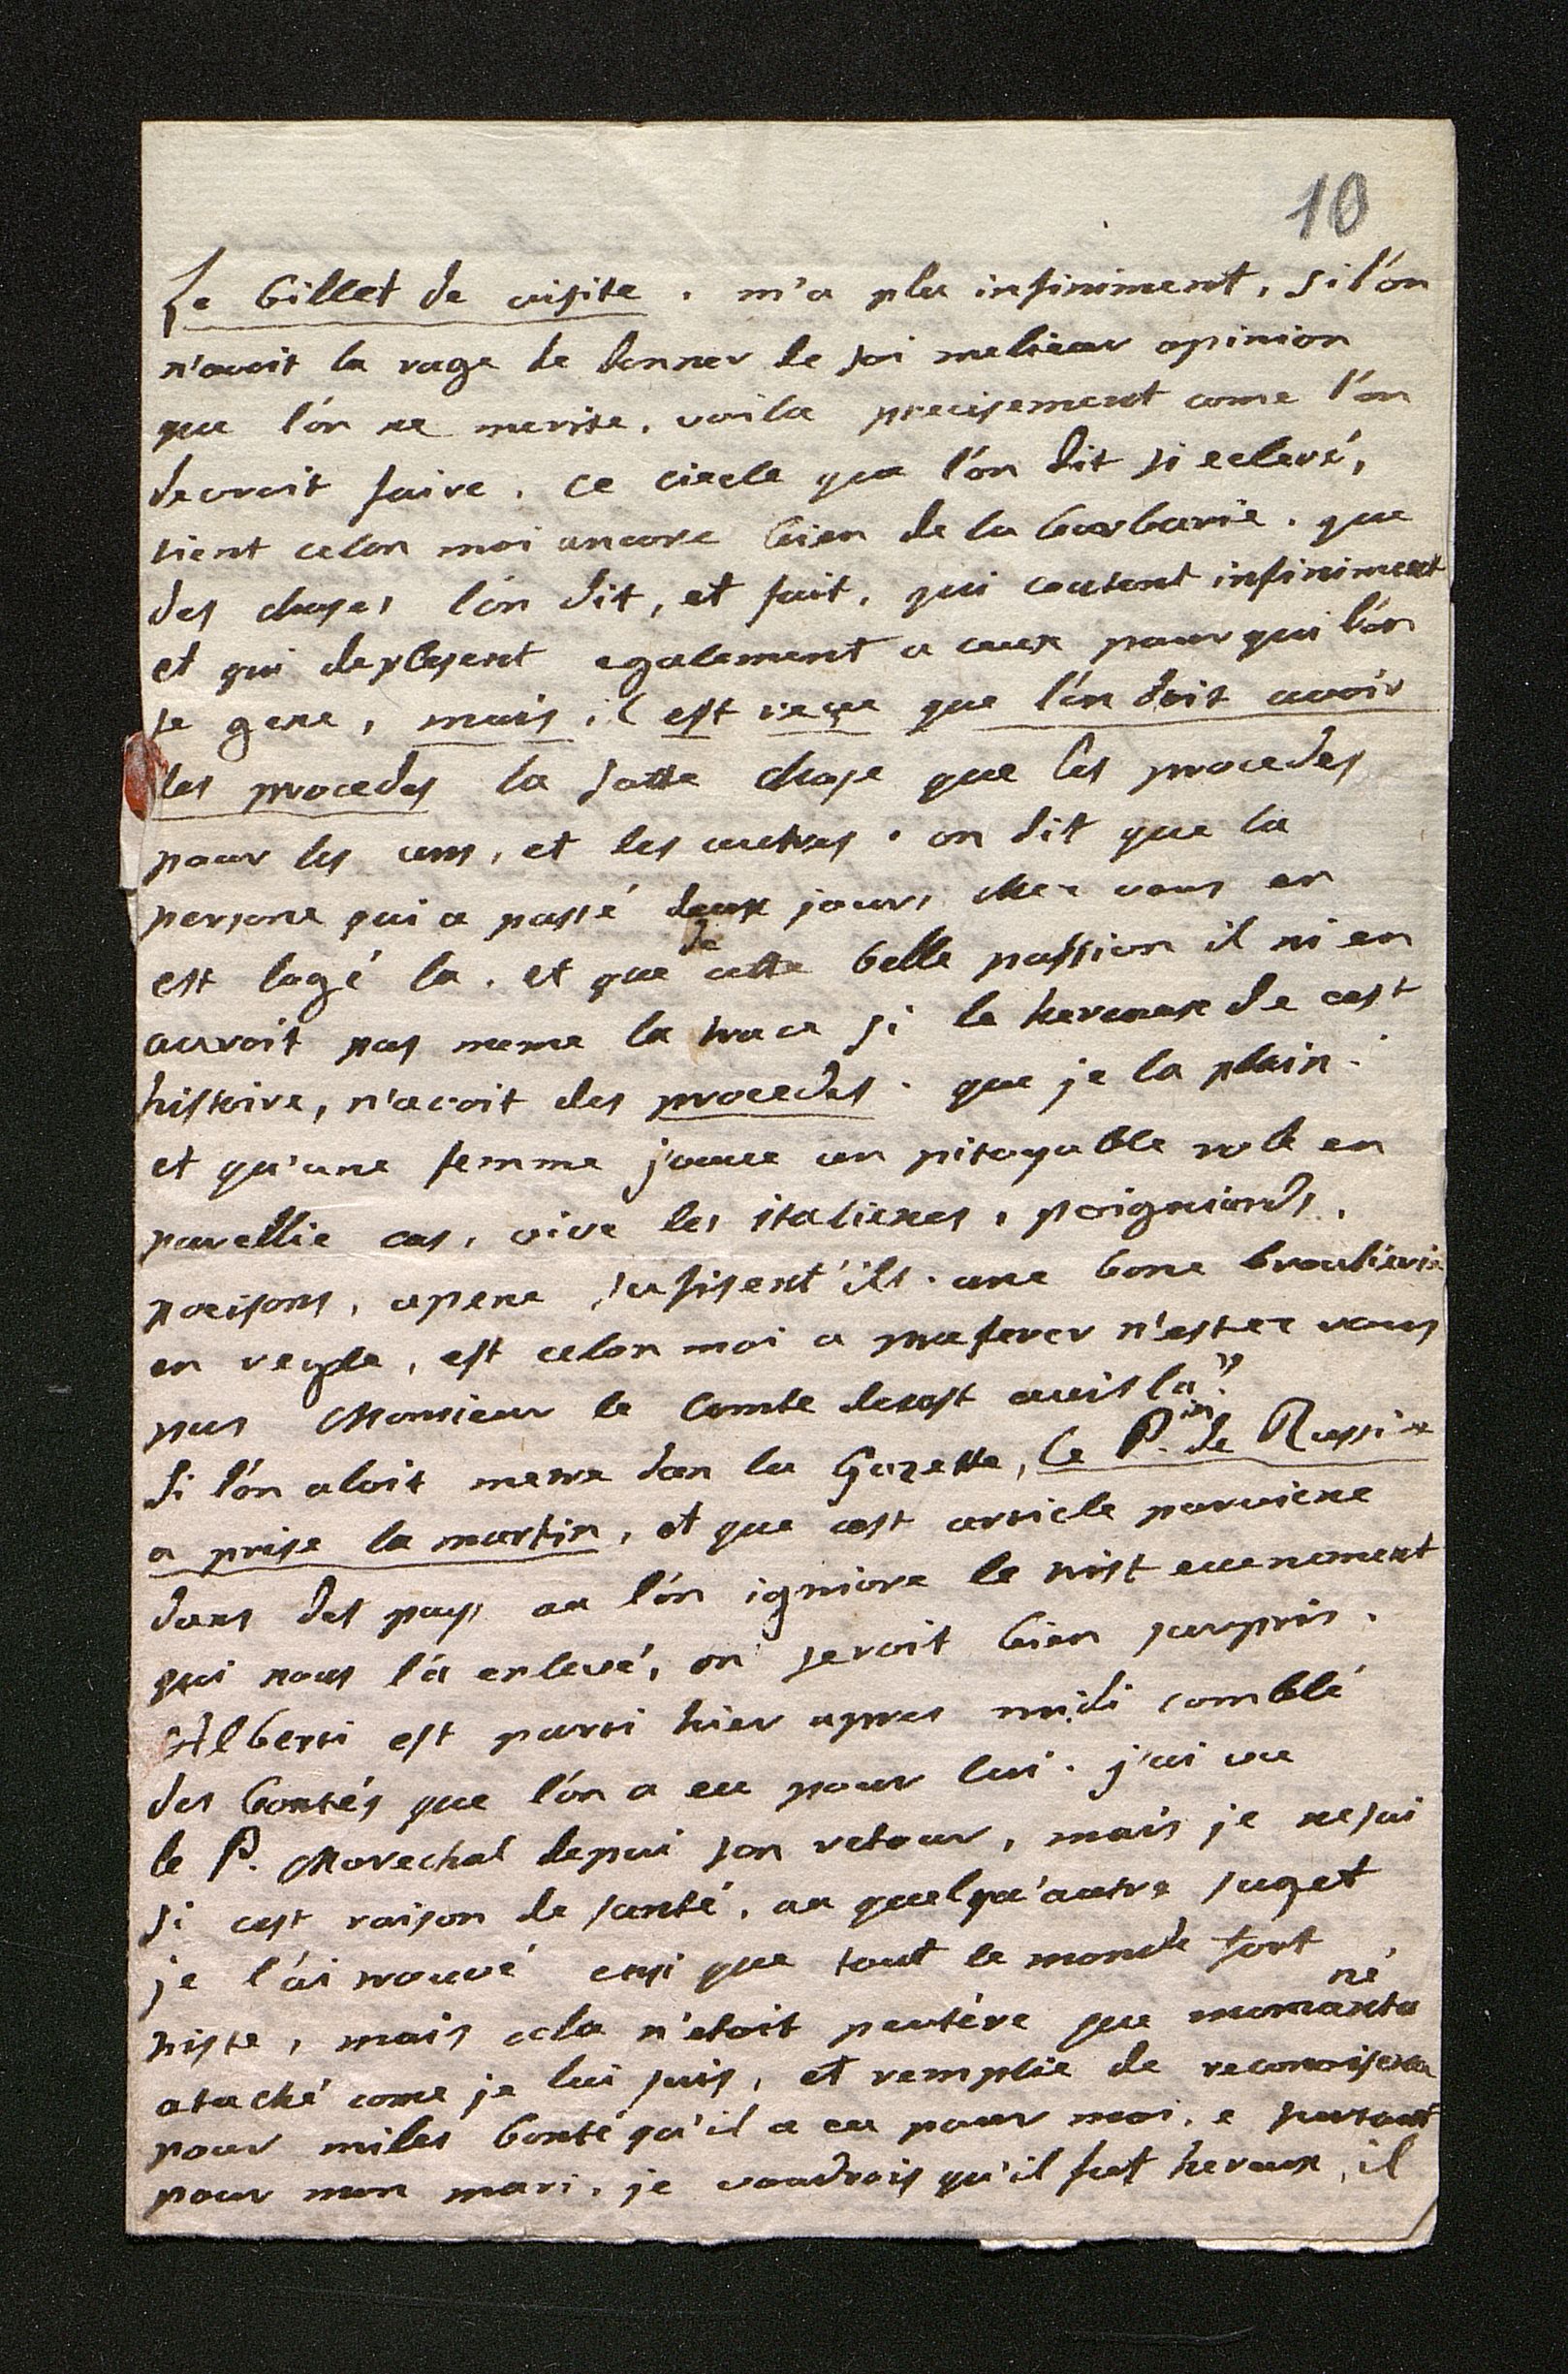 10
Le billet de visite. m'a plu infiniment, si l'on
n'avoit la rage de donner de soi melieur opinion
que l'on ne merite. voila precisement come l'on
devroit faire. ce ciecle que l'on dit si ecleré,
tient celon moi ancore bien de la barbarie. que
des choses l'on dit, et fait, qui coutent infiniment
et qui deplesent egalement a ceux pour qui l'on
se gene, mais il est reçue que l'on doit avoir
des procedes la sotte chose que les procedes
pour les uns, et les autres. on dit que la
persone qui a passé deux jours chez vous en
est logé la. et que de cette belle passion il ni en
auroit pas meme la trace si le hereuse de cest
histoire, n'avoit des procedes. que je la plain.
et qu'une femme joue un pitoyable role en
parellie cas, vive les italienes, poigniards,
poisons, a pene sufisent'ils. une bone broulierie
en regle, est celon moi a preferer n'estez vous
pas Monsieur le Comte decest avis la?
Si l'on aloit metre dan la Gazette, le P.in de Russie
a prise la martin, et que cest article parviene
dans des pays ou l'on igniore le trist evenement
qui nous l'a enlevé, on seroit bien surpris.
Alberti est parti hier apres midi comblé
des bontés que l'on a eu pour lui. j'ai vu
le P. Marechal depui son retour, mais je ne sai
si cest raison de santé, ou quelqu'autre suget
je l'ai trouvé ensi que tout le monde fort
triste, mais cela n'etoit peutére que momantané
ataché come je lui suis, et remplie de reconoisence
pour miles bonté qu'il a eu pour moi, e surtout
pour mon mari, je voudrois qu'il fut hereux, il